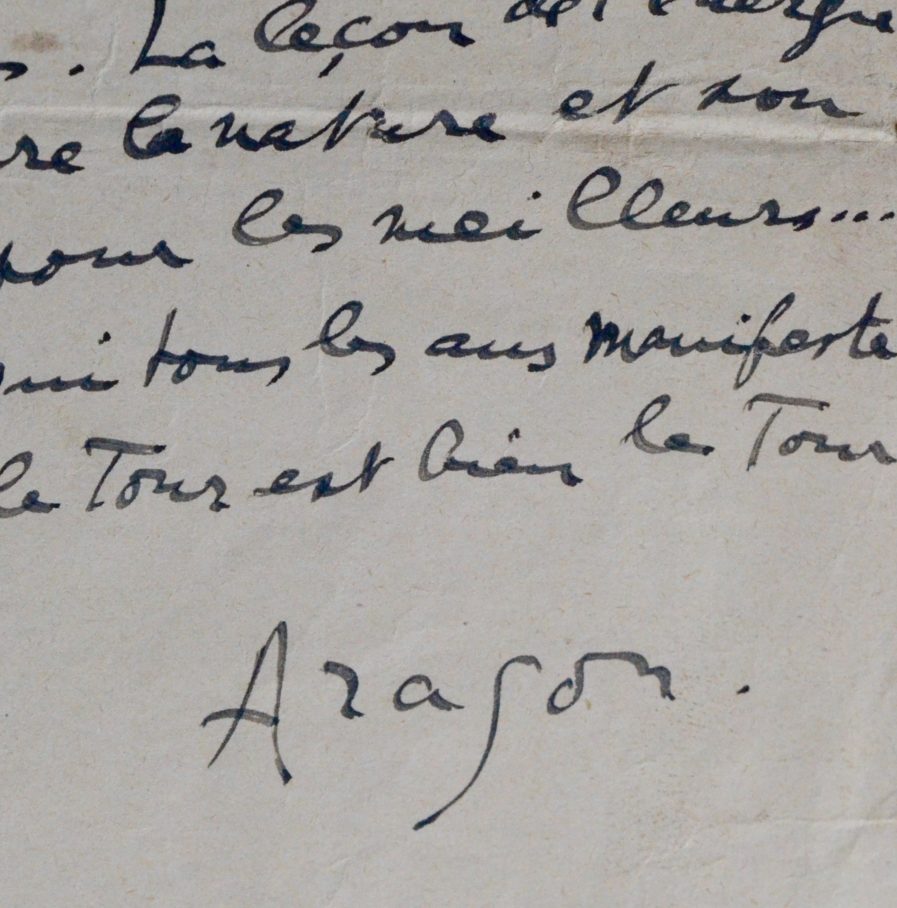 . La leçon de l'énergie
re la nature et son
pour les meilleurs...
ui tous les ans manifeste
le Tour est bien le Tour
Aragon.